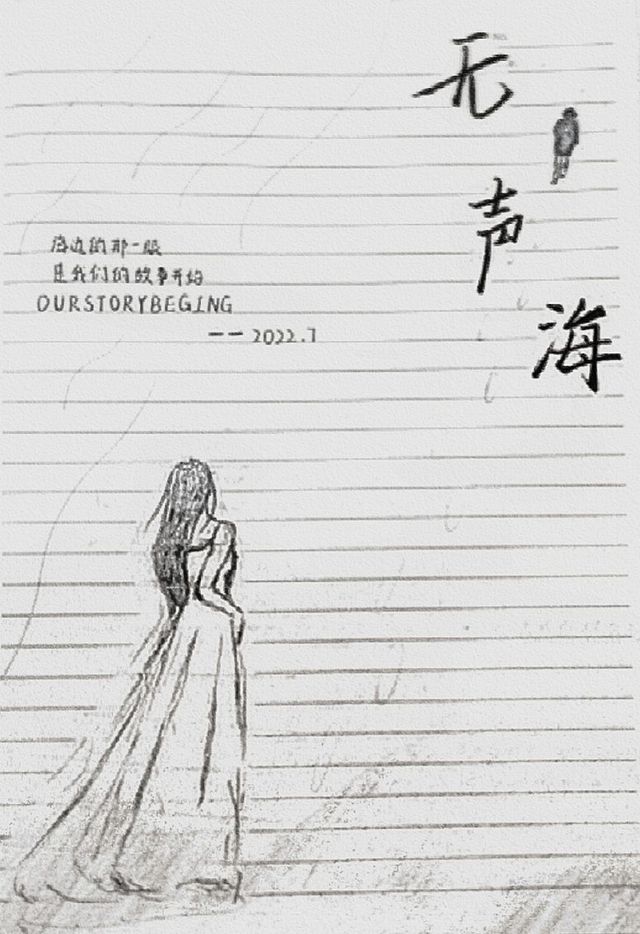 无声海
海边的那一眼
是我们的故事开始
OURSTORYBEGING
——2022.7